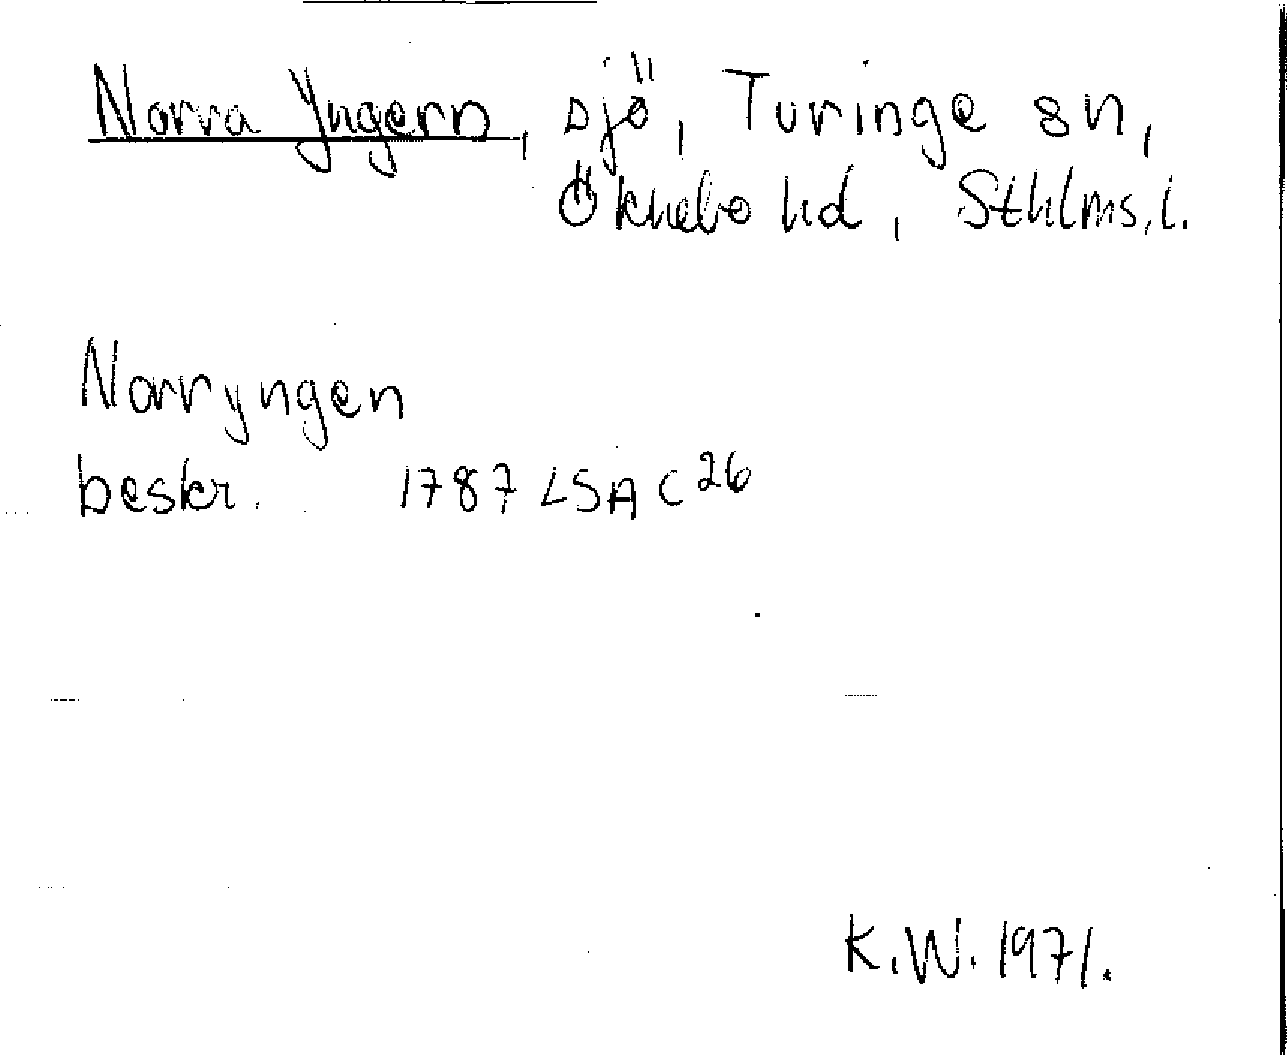 Norra Yngern, sjö, Turinge sn,
Öknebo hd, Sthlms l.
Norryngen
beskr. 1787 LSA C 26
K.W. 1971.